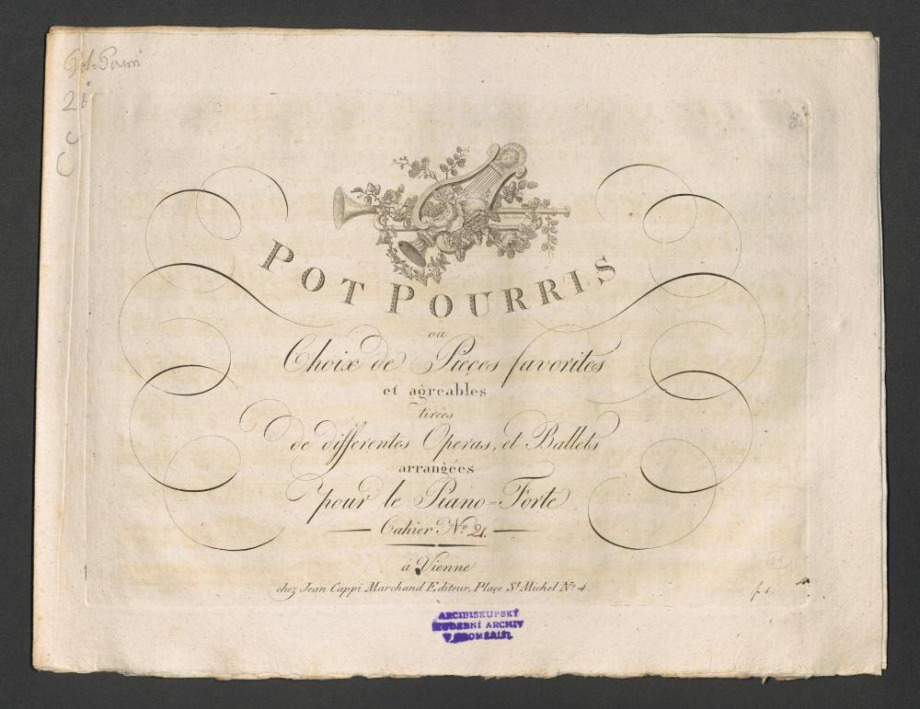 Pot-Pourri
21
C
POT POURRIS
ou
Choix de Pieçes favorites
et agréables
tirées
de differentes Operas, et Ballets
arrangées
pour le Piano-Forte
Cahier No. 21.
à Vienne
chez Jean Cappi Marchand Editeur, Plaçe St. Michel No. 4.
ARCIBISKUPSKÝ
HUDEBNÍ ARCHIV
V KROMĚŘÍŽI